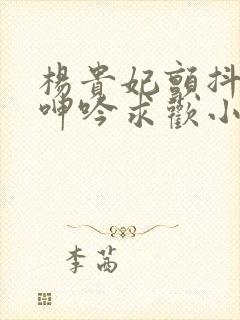 楊貴妃顫抖
呻吟求歡小
李茜